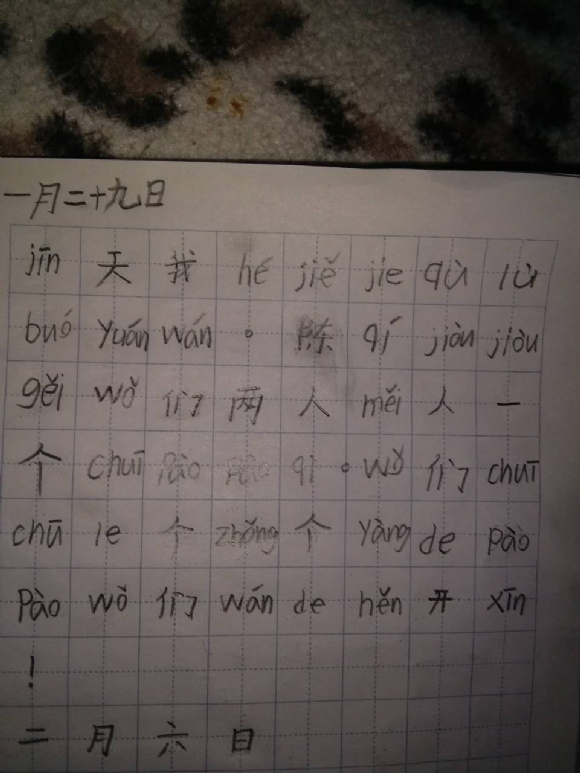 一月二十九日
jīn 天 我 hé jiě jie qù lù
buó yuán wán 。 陈 qí jiòu jiòu
gěi wǒ 们 两 人 měi 人 一
个 chuī pào pào qì 。 wǒ 们 chuī
chū le 个 zhǒng 个 yàng de pào
pào wǒ 们 wán de hěn 开 xīn
！
二 月 六 日